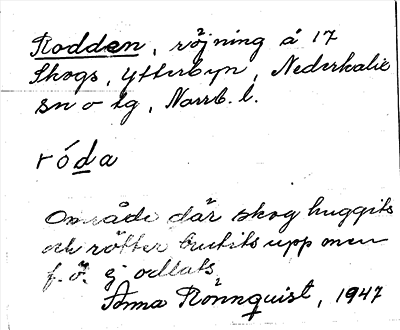 Rodden, röjning å 17
Skogs, Ytterbyn, Nederkalix
sn o tg, Norrb. l.
róda
Område där skog huggits
och rötter brutits upp men
f. ö. ej odlats.
Anna Rönnquist, 1947